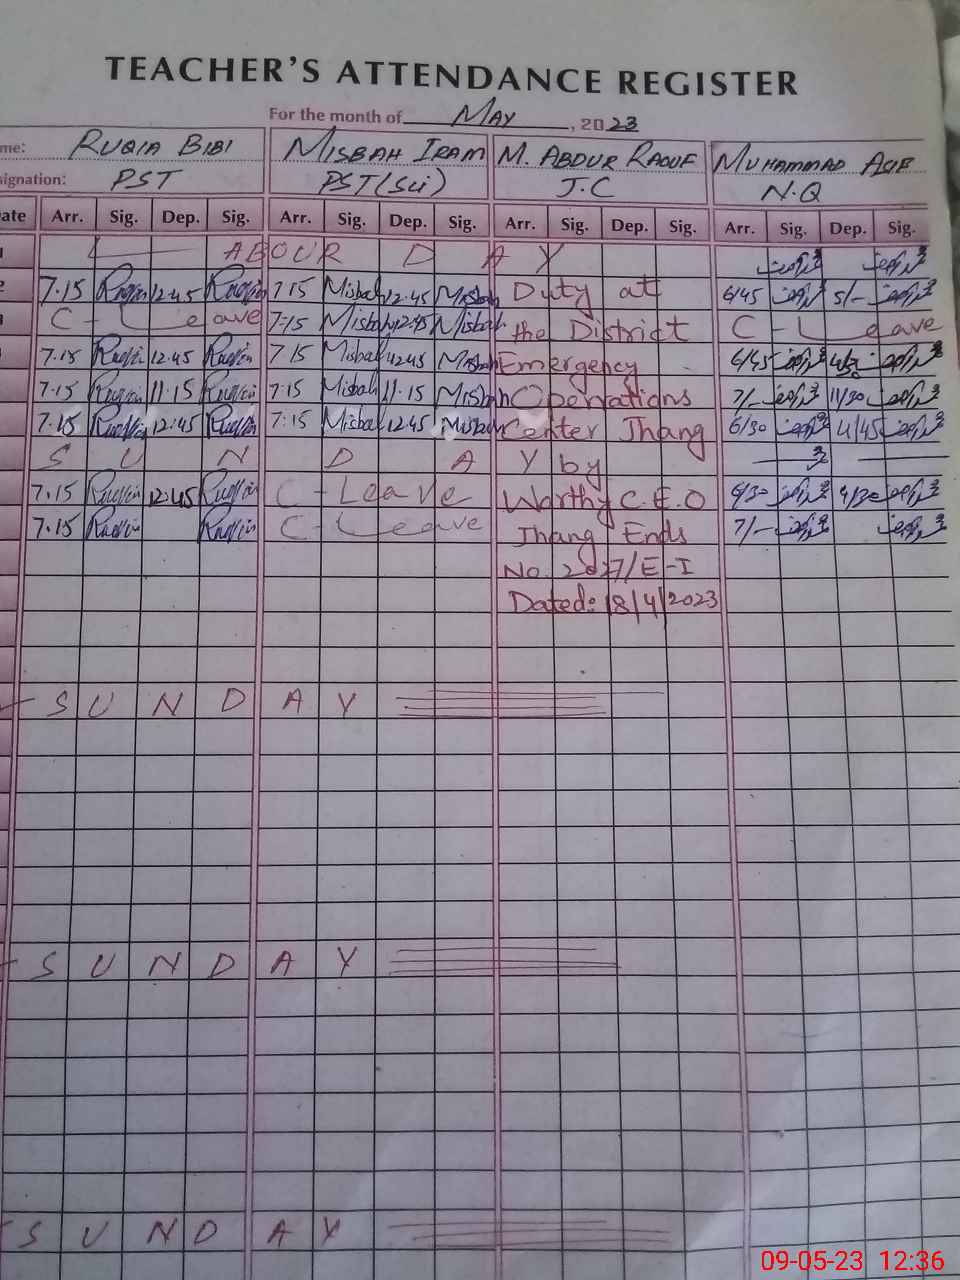 TEACHER'S ATTENDANCE REGISTER
For the month of May, 2023
me: RUQIA BIBI MISBAH IRAM M. ABDUR RAOUF MUHAMMAD ASIF
signation: PST PST(Sci) J.C N.Q
ate Arr. Sig. Dep. Sig. Arr. Sig. Dep. Sig. Arr. Sig. Dep. Sig. Arr. Sig. Dep. Sig.
LABOUR DAY
7.15 12:45 7 15 Misbah 12:45 Misbah Duty at 6/45 5/-
C-Leave 7:15 Misbah 12:45 Misbah the District C-Leave
7.15 12:45 7 15 Misbah 12:45 Misbah Emergency 6/45
7.15 11:15 7:15 Misbah 11:15 Misbah Operations 7/- 11/30
7.15 12:45 7:15 Misbah 12:45 Misbah Center Jhang 6/30 4/45
SUNDAY by
7.15 12:45 C-Leave Worthy C.E.O 6/30 4/30
7.15 C-Leave Jhang Ends 7/-
No. 2027/E-I
Dated: 18/4/2023
SUNDAY
SUNDAY
SUNDAY
09-05-23 12:36